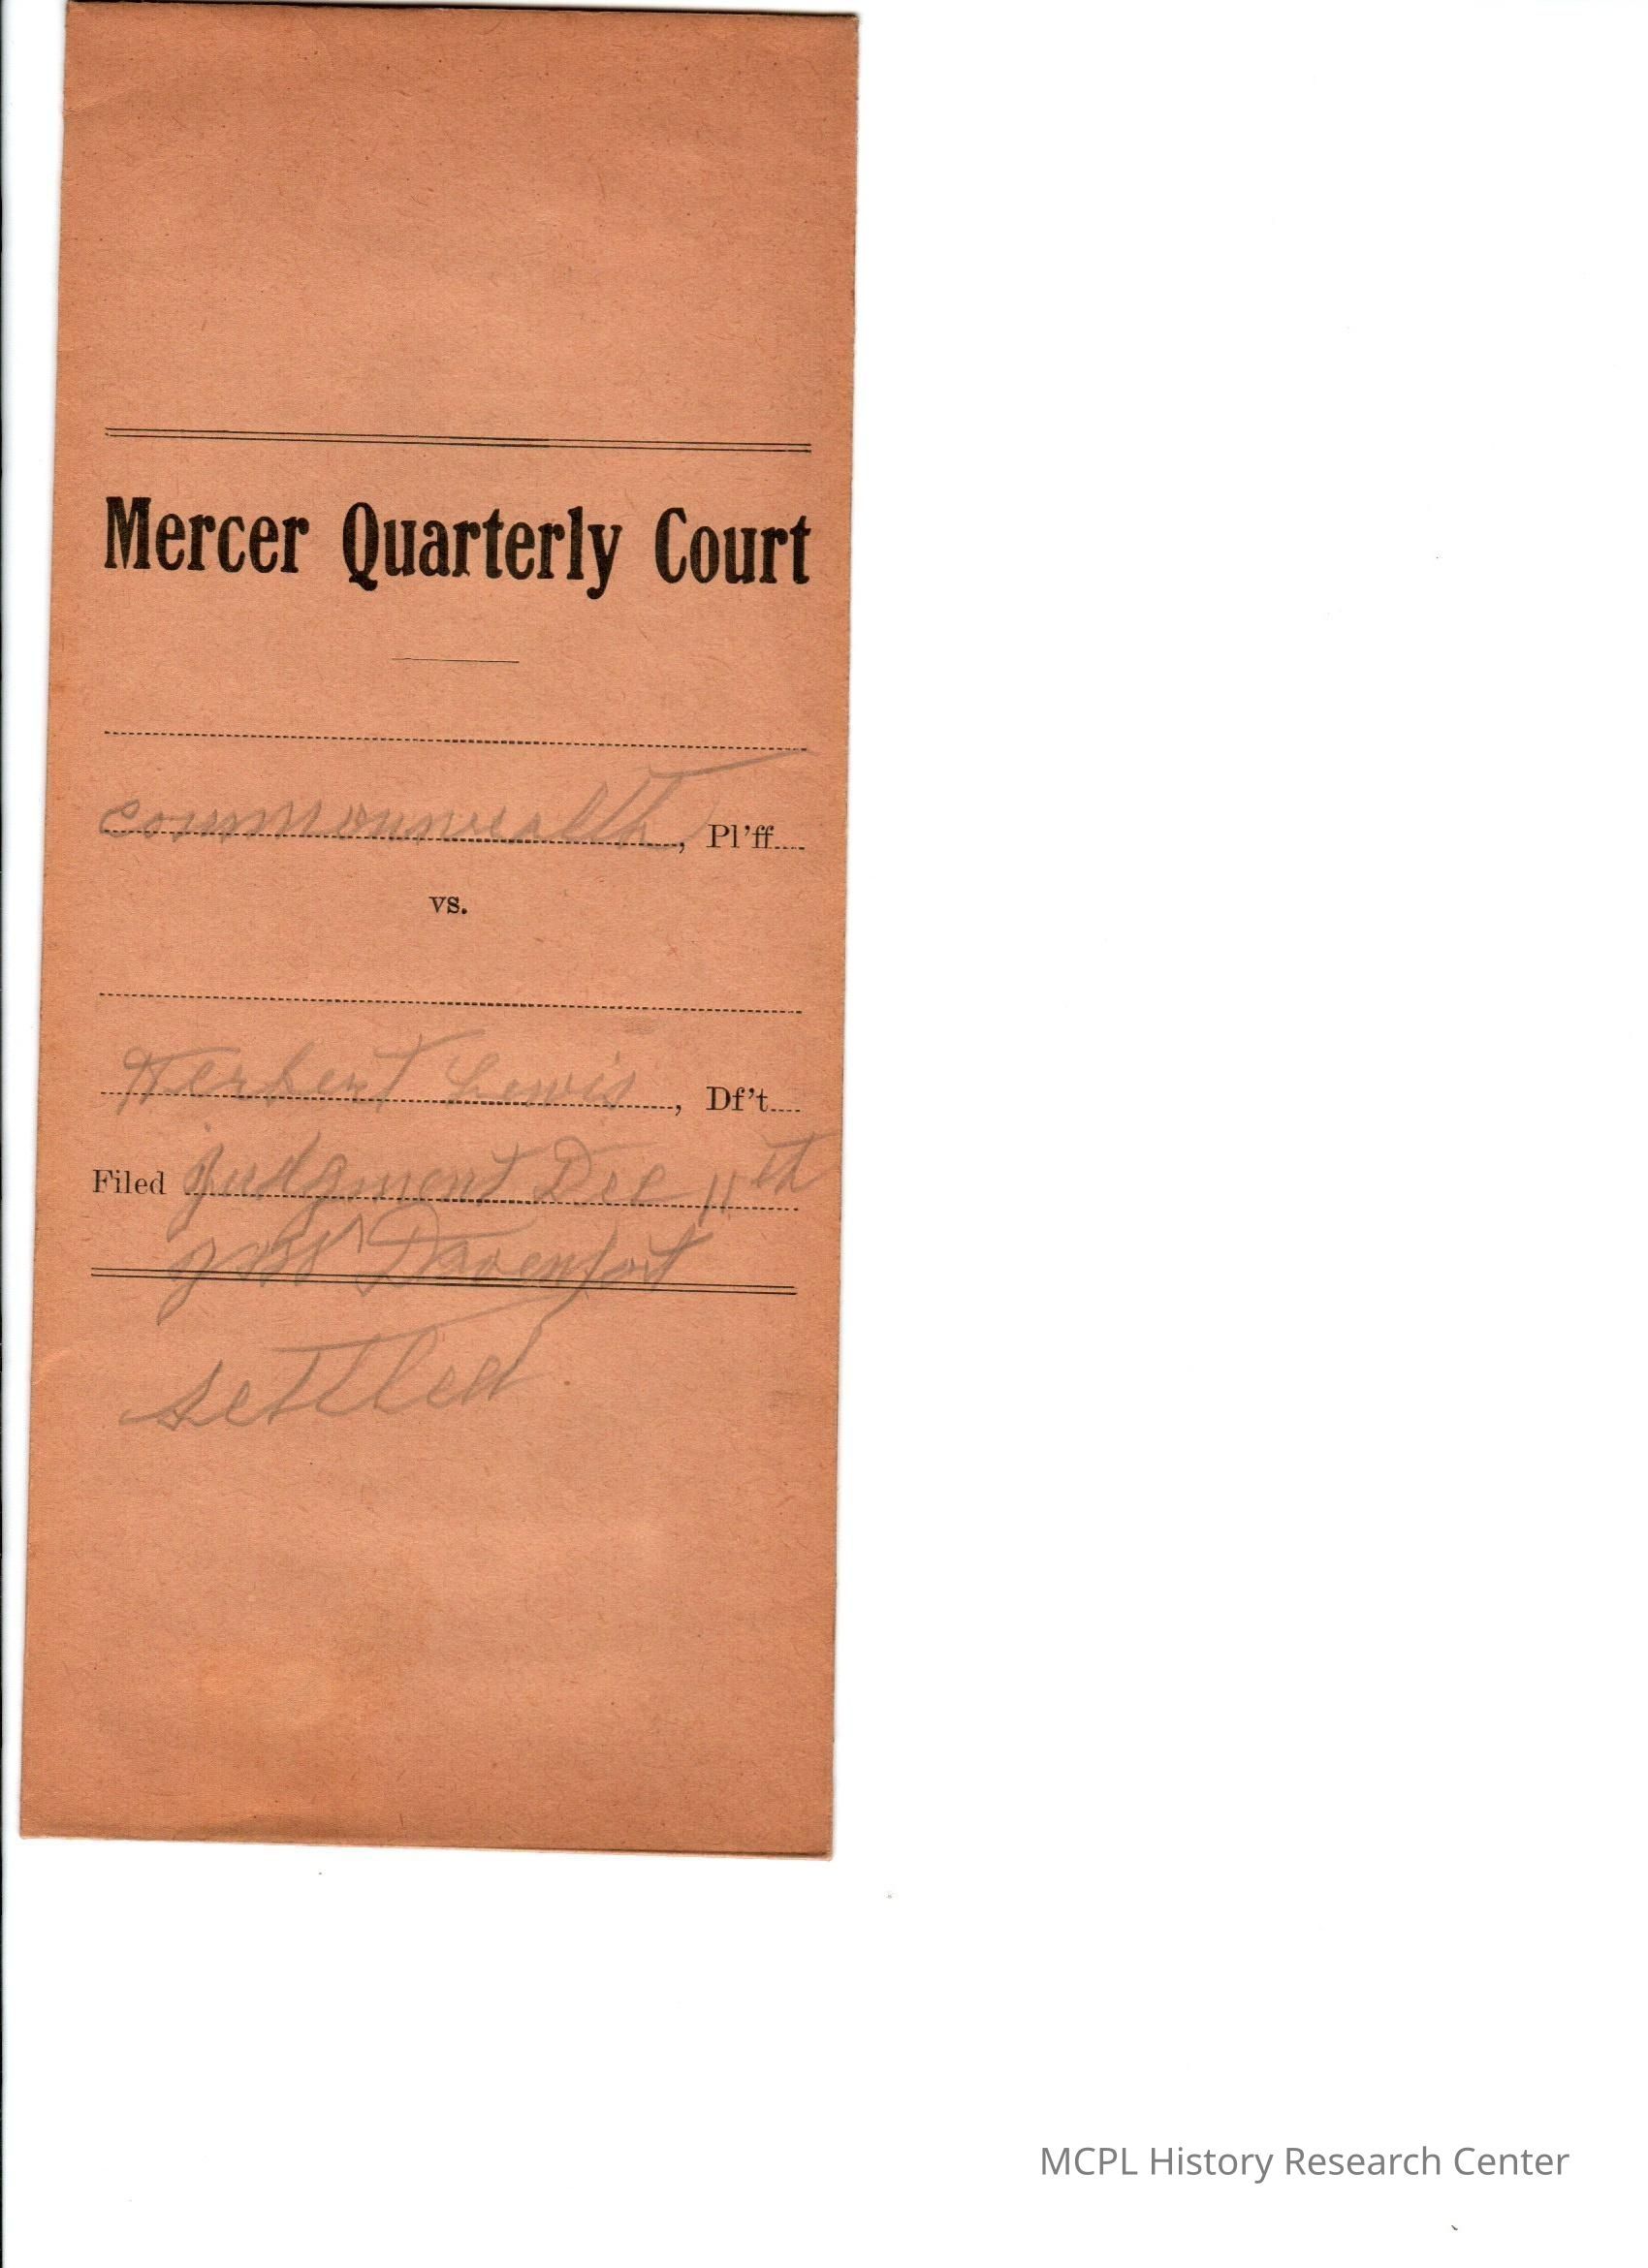 Mercer Quarterly Court
commonwealth, Pl'ff
vs.
Herbert Lewis, Df't
Filed Judgment Dec 11th
Davenport
settled
MCPL History Research Center